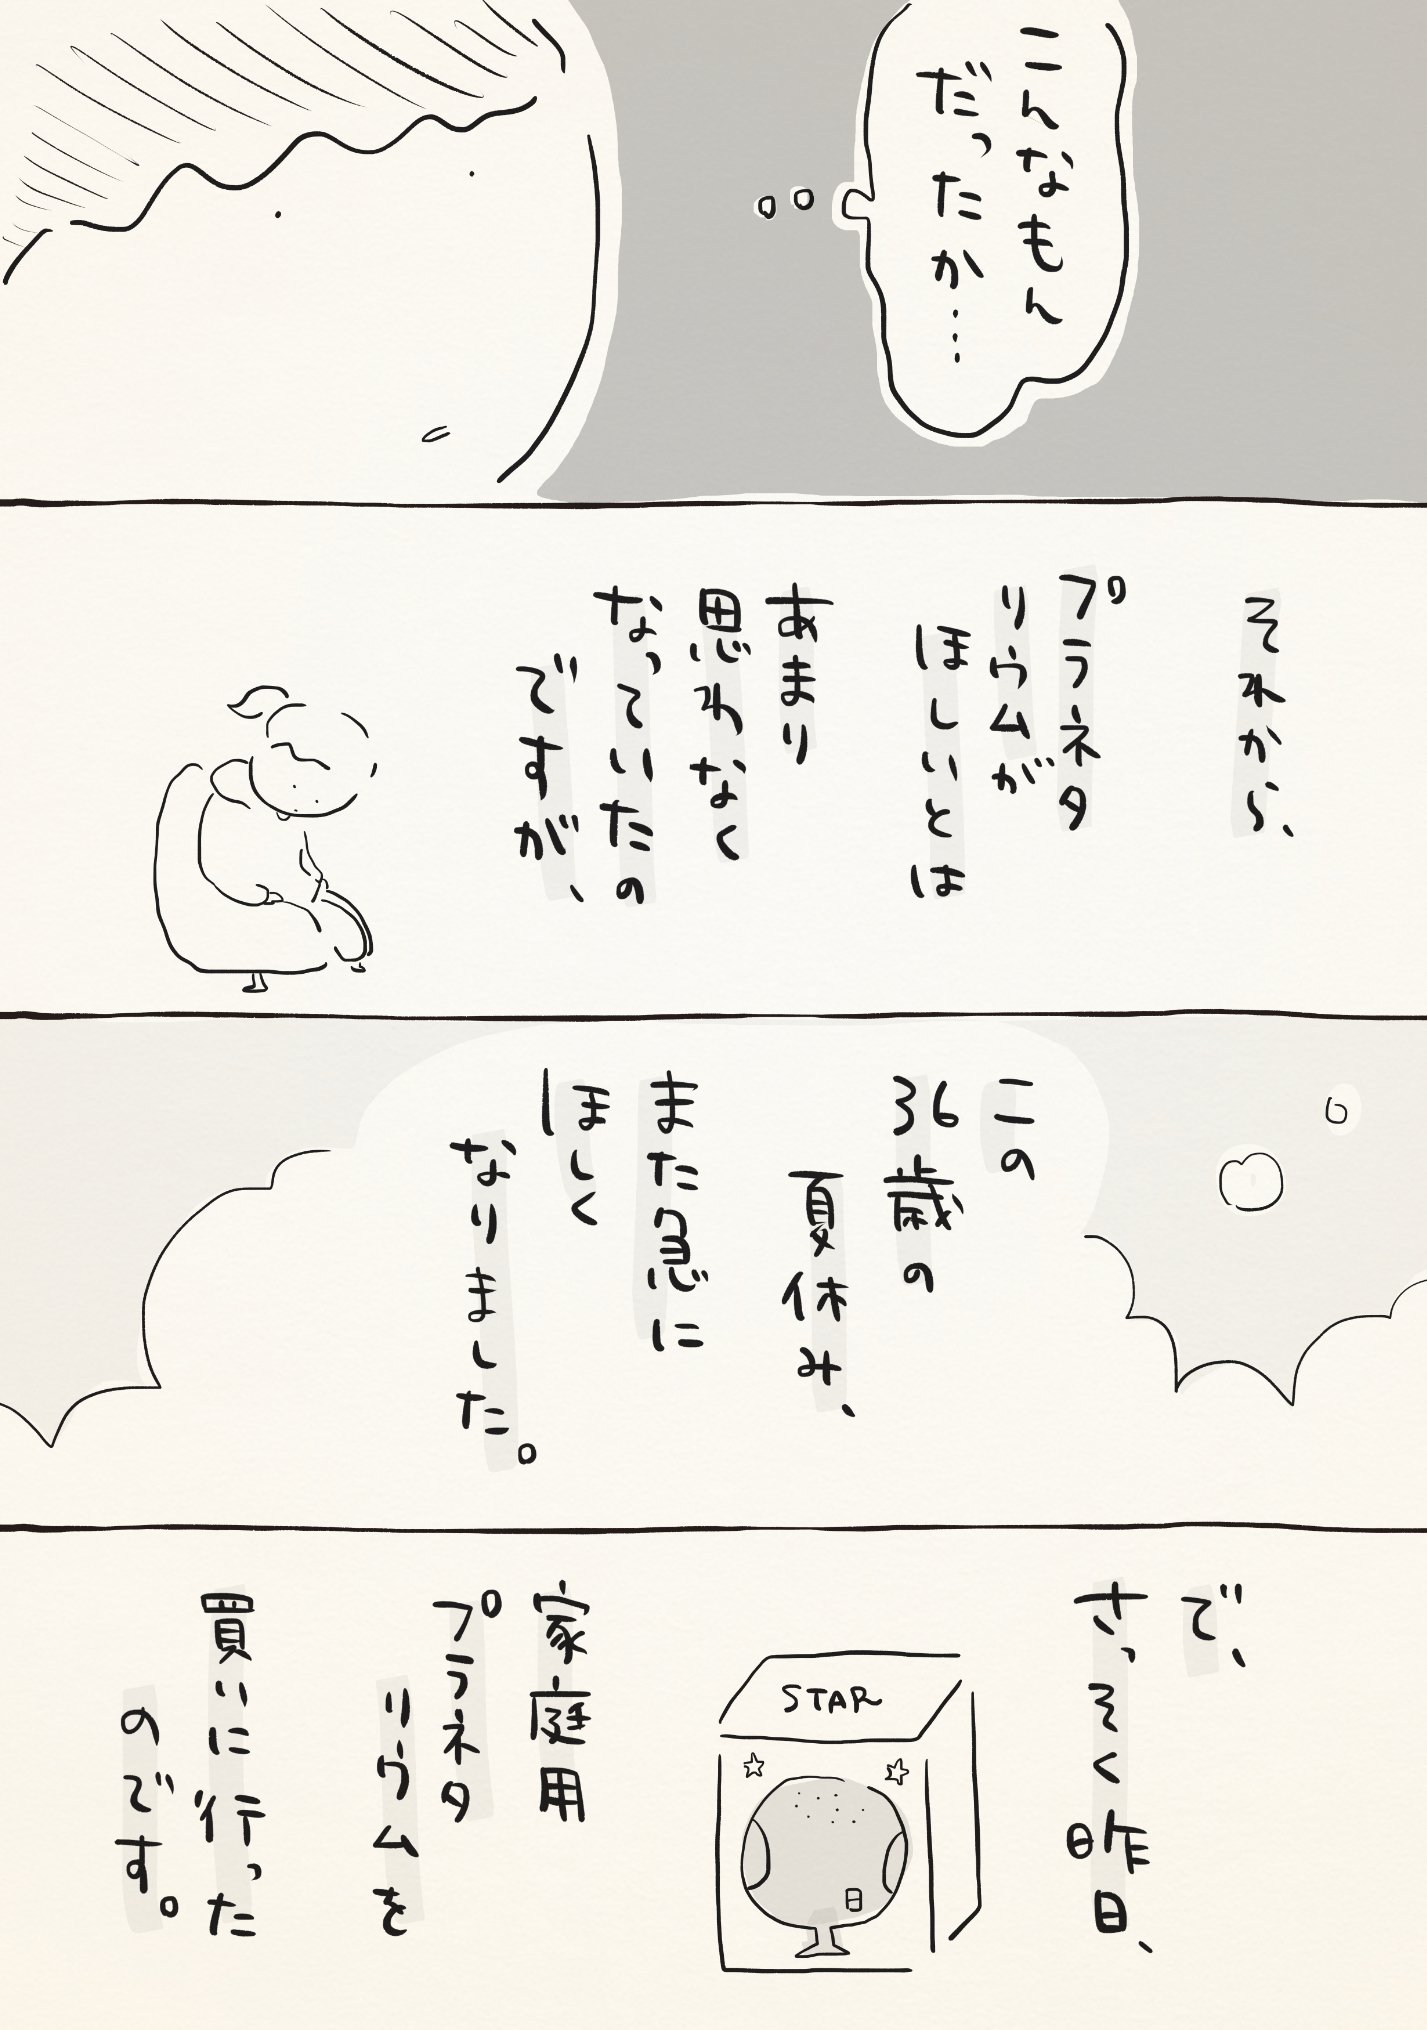 こんなもん
だったか……
それから、
プラネタ
リウムが
ほしいとは
あまり
思わなく
なっていたの
ですが、
この
36歳の
夏休み、
また急に
ほしく
なりました。
で、
さっそく昨日、
STAR
家庭用
プラネタ
リウムを
買いに行った
のです。